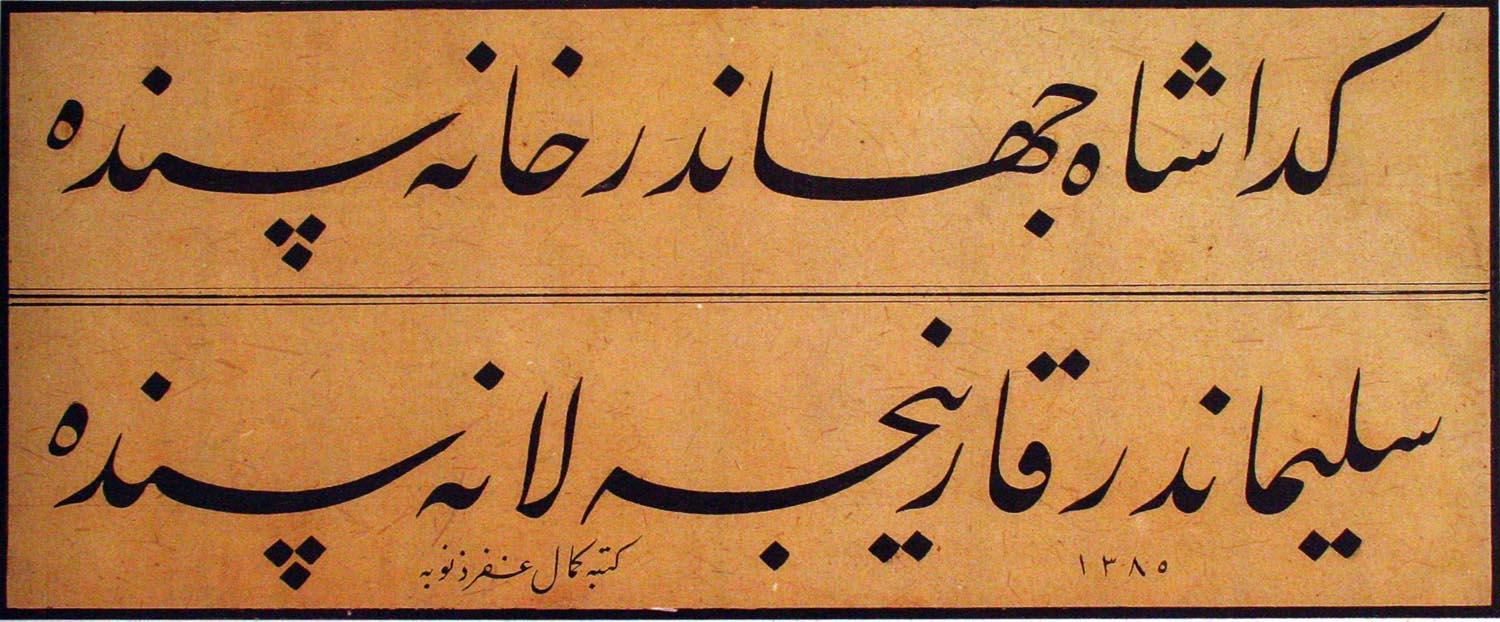 كدا شاه جهاندر خانه‌سنده
سليماندر قارينجه لانه‌سنده
كتبه كمال غفر ذنوبه ١٣٨٥